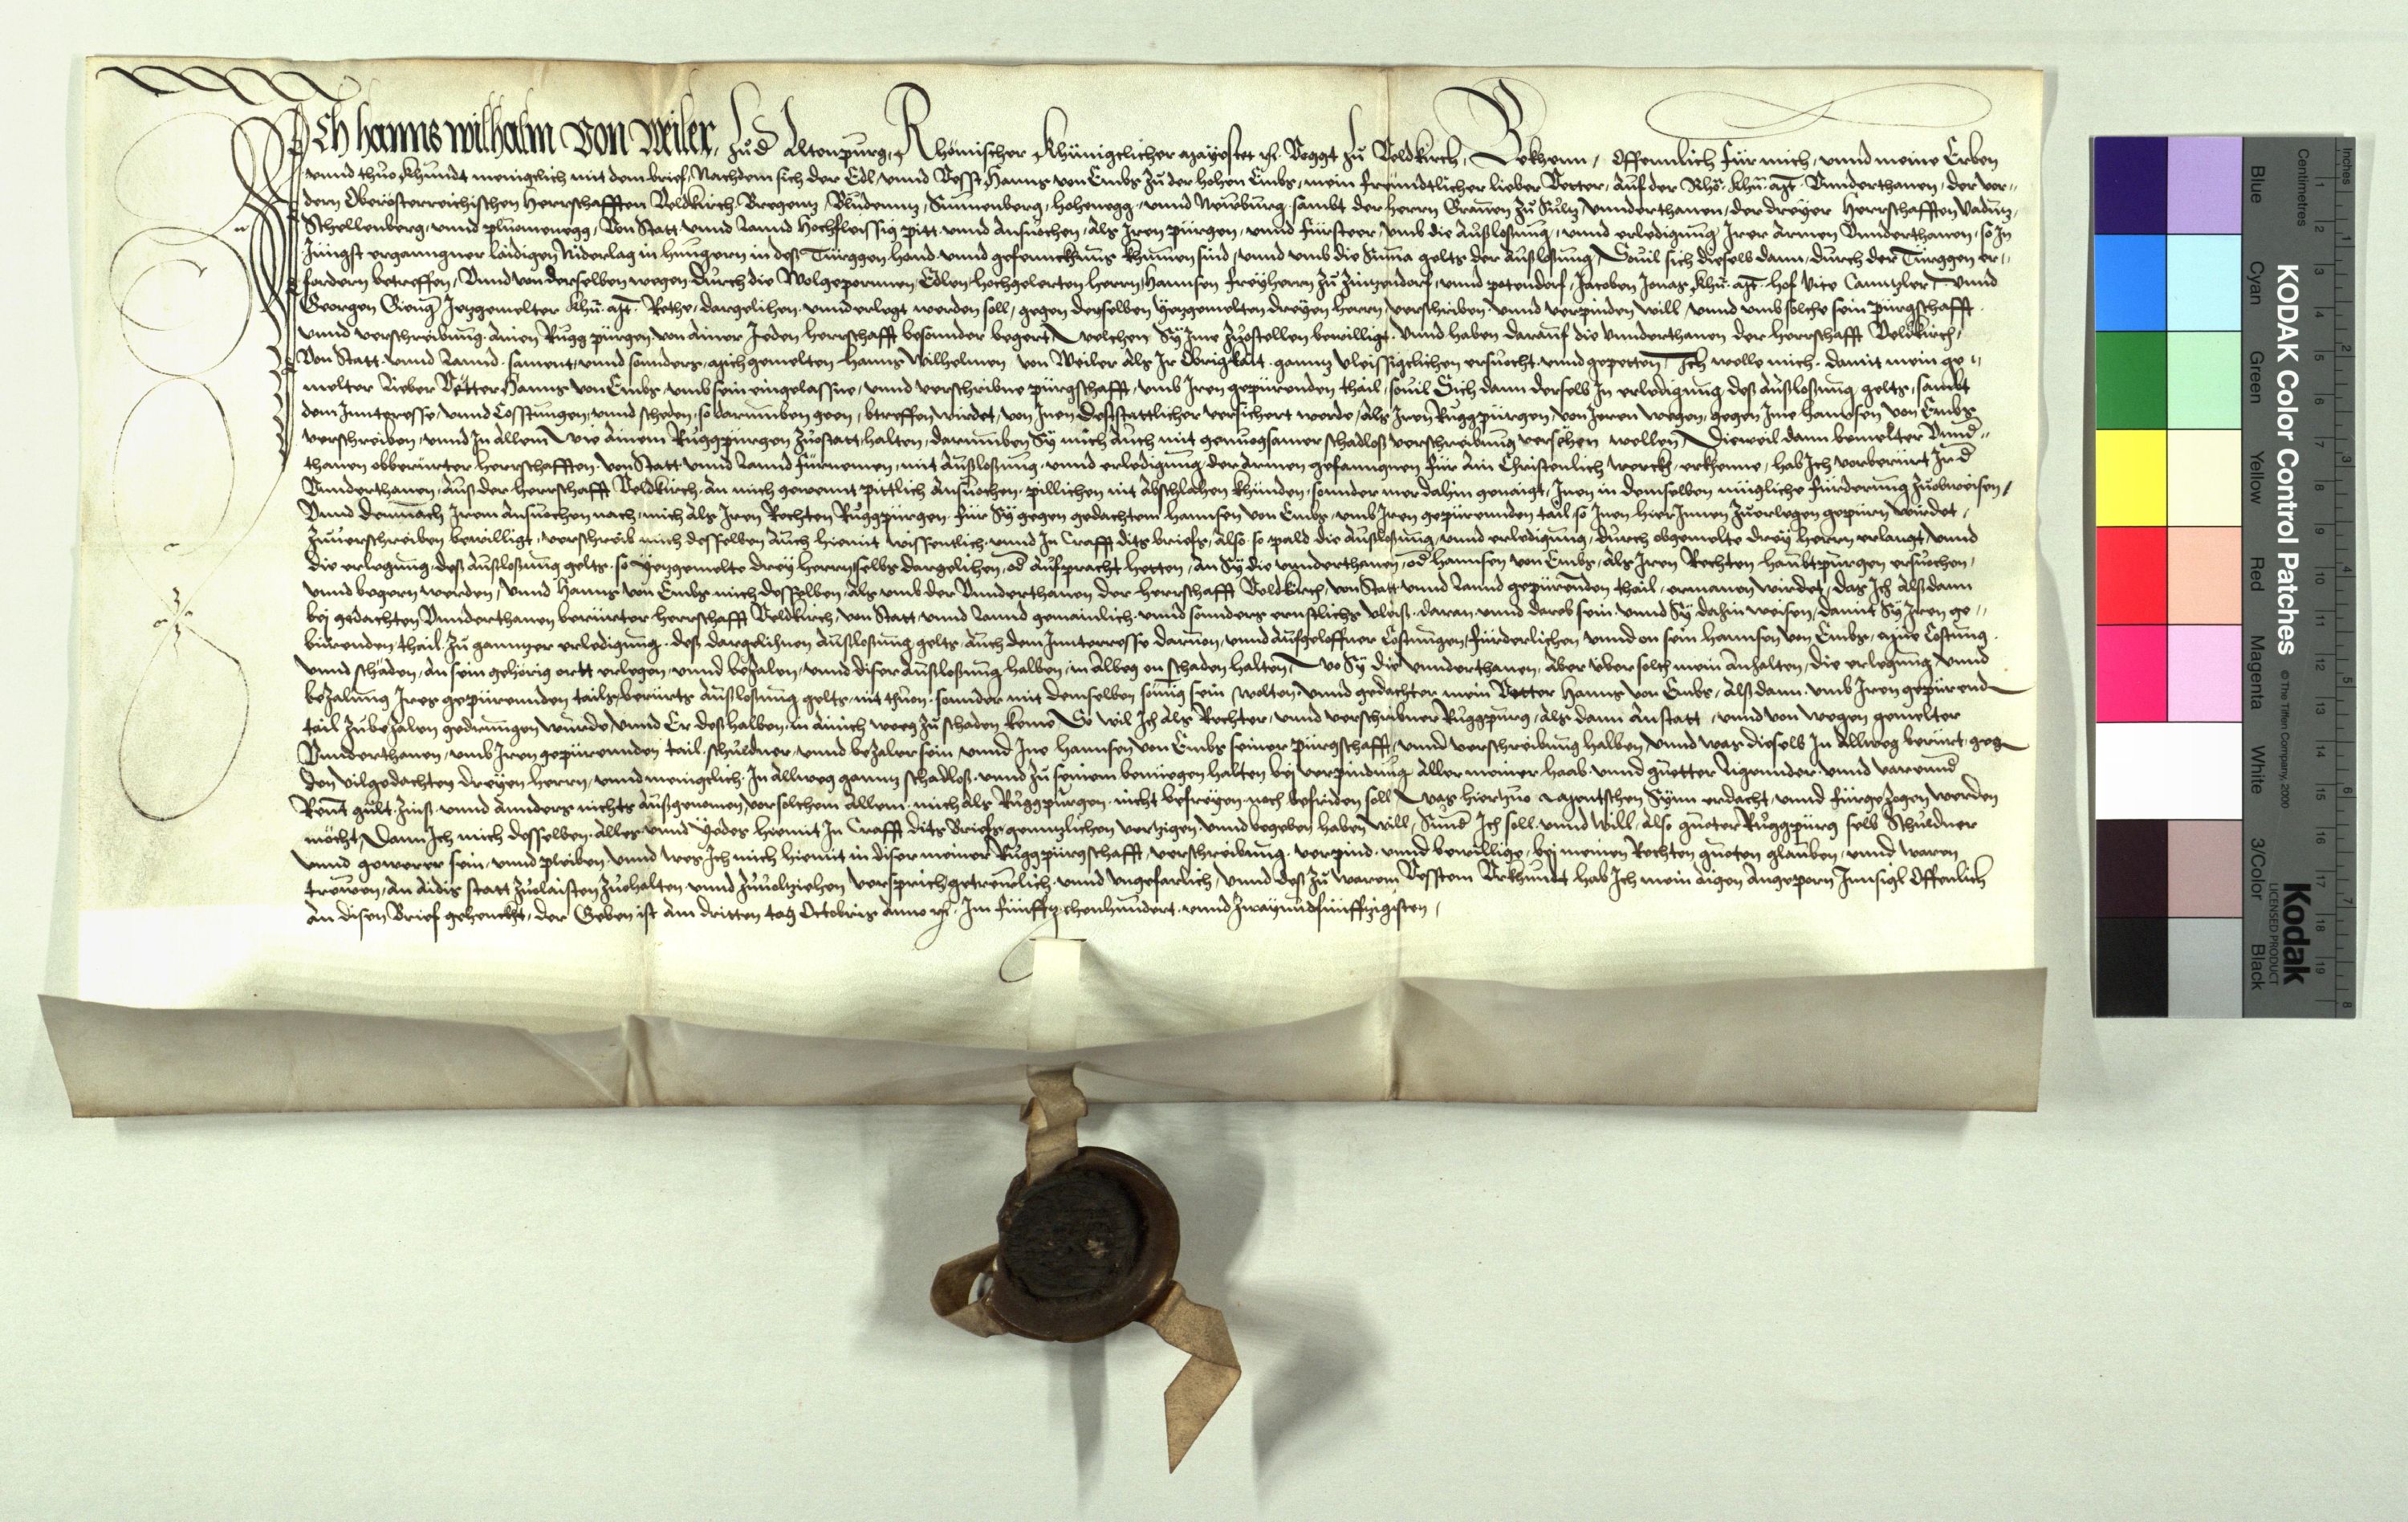 Ich Hanns Wilhalm von Weiler, zud Altenpurg, Rhömischer Khünigclicher Mayestet rc. Voggt zu Veldkirch, Bekhenn, Offennlich für mich, vnnd meine Erben
vnnd thuo khundt menigclich mit dem brief, Nachdem sich der Edl, vnnd Vesst, Hanns von Embs zu der Hohen Embs, mein freundtlicher lieber Vetter, Auf der Rhö. Khü. Mt. Vnnderthanen, der vor-
dern Oberösterreichischen Herrschafften Veldkirch, Bregenz, Bludennz, Sunnenberg, Hohenegg, vnnd Neuburg, sambt der Herrn Grauen zu Sulz, Vnnderthanen, der dreyer Herrschafften Vadutz,
Schellenberg, vnnd pluomenegg, Von Statt vnnd Lannd Hochfleissig pitt vnnd Ansuochen, Als Iren pürgen, vnnd fürsteer, vmb die Außlosung, vnnd erledigung Irer Armen Vnnderthanen, so In
Jüngst erganngner laidigen Niderlag in Hungern in deß Türggen hand vnnd gefenncknus khumen sind, vnnd vmb die Suma gelts der Auslosung, Souil sich dieselb dann, durch der Türggen er-
fordern betreffen, Vnnd von derselben wegen durch die Wolgepornnen Edlen, Hochgelerten Herrn, Hannsen freyherrn zu Zintzendorf, vnnd potendorf, Jacoben Jonas, Khü. Mt. Hof Vice Canntzler, vnnd
Georgen Gienng Jezgemelter Khü. Mt. Rethe, dargelihen, vnnd erlegt werden soll, gegen denselben Yezgemelten dreyen Herrn, verschriben, vnnd verpinden will, vnnd vmb solche sein pürgschafft
vnnd verschreibung, Ainen Rugg pürgen, von Ainer Jeden Herrschafft besonder begert, Welchen Sy Ime zuostellen bewilligt, Vnnd haben darauf die Vnnderthanen der Herrschafft Veldkirch,
Von Statt vnnd Lannd, sament, vnnd sonnders, Mich gemelten Hanns Wilhelmen von Weiler Als Ir Obrigkait, gannz vleissigclichen ersuocht, vnnd gepetten, Ich welle mich, damit mein ge-
melter Lieber Vetter Hanns von Embs, vmb sein eingelassne, vnnd verschribne pürgschafft, vmb Iren gepürenden thail, souil Sich dann derselb In erledigung deß Außlosung gelts, sambt
dem Innteresse, vnnd Costungen, vnnd scheden, so darunnben geen, btreffen wirdet, von Inen dest stattlicher versichert werde, Als Iren Ruggpürgen, von Jren wegen, gegen Ime Hannsen von Embs
verschreiben, vnnd In Allem, wie Ainem Ruggpürgen zuostatt, halten, darunnben Sy mich Auch mit genuogsamer schadloß verschreibung versehen wellen, Dieweil dann bemelter Vnnd-
thanen obberürter Herrschafften, von Statt vnnd Lannd fürnemen, mit Außlosung, vnnd erledigung der Armen gefanngnen für Ain Christenlich werckh, erkhenne, hab Ich vorberürt Ired
Vnnderthanen, Auß der Herrschafft Veldkirch, An mich gewent pittlich Ansuochen, pillichen nit Abschlahen khünden, sonnder mer dahin genaigt, Inen in demselben mügliche fürderung zuobweisen,
Vnnd demnach Irem Ansuochen nach, mich Als Iren Rechten Ruggpürgen, für Sy gegen gedachtem Hannsen von Embs, vmb Iren gepürennden tail, so Inen hierInnen zuerlegen gepürn würdet,
zuuerschreiben bewilligt, verschreib mich desselben Auch hiemit wissentlich, vnnd In Crafft dits briefs, Also, so pald die Außlosung, vnnd erledigung, durch obgemelte drey Herrn erlangt, vnnd
die erlegung, deß Außlosung gelts, so Yezgemelte drey Herrn selbs dargelichen, od Aufpracht hetten, An Sy die vnnderthanen, od Hannsen von Embs, Als Iren Rechten Haubtpürgen ersuochen,
vnnd begern werden, Vnnd Hanns von Embs mich desselben, Als vmb der Vnnderthanen der Herrschafft Veldkirch, von Statt vnnd Lannd gepürenden thail, ermanen wirdet, das Ich Alßdann
bei gedachten Vnnderthanen berürter Herrschafft Veldkirch, von Statt, vnnd Lannd gemainlich, vnnd sonnders ernstlichs vleiß, daran, vnnd darob sein, vnnd Sy dahin weisen, damit Sy Iren ge-
bürenden, thail, zu ganntzer erledigung, deß dargelihnen Außlosung gelts, Auch dem Innterresse daruon, vnnd Aufgeloffner Costungen, fürderlichen vnnd on sein Hannsen von Embs, Mue Costung
vnnd schaden, An sein gehörig ortt erlegen, vnnd bezalen, vnnd diser Außlosung halben, in Albeg on schaden halten, Wo Sy die vnnderthanen, Aber vber solch mein Anhalten, die erlegung, vnnd
bezalung Ires gepürennden tails, berürts Außlosung gelts, nit thuen, sonnder mit demselben sömig sein wolten, vnnd gedachter mein Vetter Hanns von Embs, Alß dann, vmb Iren gepürend
tail, zubezalen gedrungen würde, vnnd Er deßhalben, in Ainich weeg zu schaden keme, So wil Ich Als Rechter, vnnd verschribner Ruggpürg, Als dann Anstatt, vnnd von wegen gemelter
Vnnderthanen, vmb Iren gepürennden tail, schuldner, vnnd bezaler sein, vnnd Ine Hannsen von Embs seiner pürgschafft, vnnd verschreibung halben, vnnd was dieselb In Allweg berürt, geg
den vilgedachten dreyen Herrn, vnnd menigclich, In Allweg ganntz schadloß, vnnd zu seinem benüegen halten, bei verpindung Aller meiner Haab, vnnd güetter ligennder, vnnd varennd
Rennt, gült, Zinß, vnnd Annders nichts Außgenomen, vor solchem Allem, mich Als Ruggpürgen, nicht befreyen, noch befriden soll, Was hierzuo Mentschen Synn erdacht, vnnd fürgezogen werden
möcht, Dann Ich mich desselben, Alles, vnnd Yedes hiemit In Crafft dits Briefs, genntzlichen verzigen, vnnd begeben haben will, Sund Ich soll, vnnd will, Also guoter Ruggpürg selb Schuldner
vnnd gewerer sein, vnnd pleiben, vnnd wes Ich mich hiemit in diser meiner Ruggpürgschafft, verschreibung, verpind, vnnd bewillige, bei meinen Rechten guoten glauben, vnnd waren
trewen, An Aidis statt zuolaisten zuohalten, vnnd zuuolziehen, versprich getreurlich, vnnd vngefarlich, vnnd deß zu warem Vesstem Vrkhundt hab Ich mein Aigen Angeporn Innsigl Offenlich
An disen Brief gehenckht, der Geben ist Am dritten tag Octobris Anno rc. Im fünfftzehenhundert, vnnd Zwayundfünffzigisten,
KODAK Color Control Patches © The Tiffen Company, 2000
Kodak
LICENSED PRODUCT
Blue Cyan Green Yellow Red Magenta White 3/Color Black
Centimetres
Inches
1 2 3 4 5 6 7 8 9 10 11 12 13 14 15 16 17 18 19
1 2 3 4 5 6 7 8